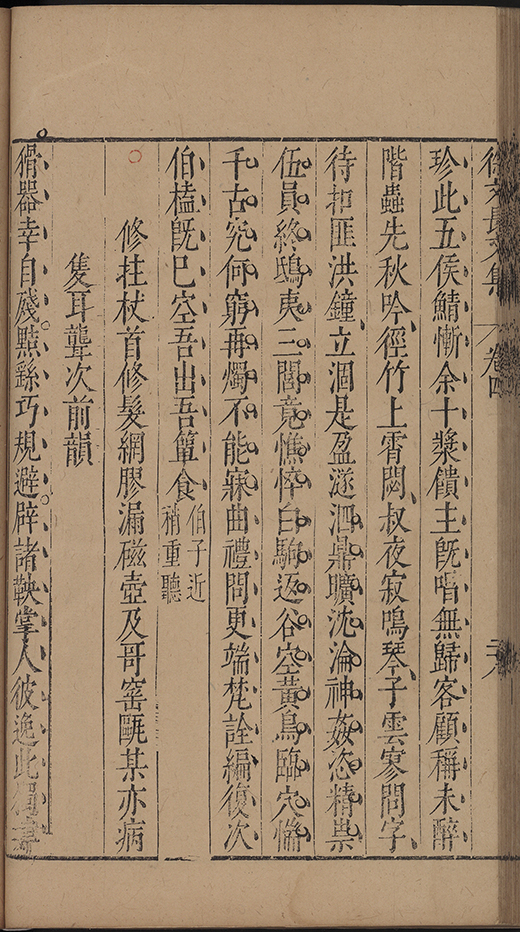 徐文長文集 卷四 二十八
珍此五侯鯖慚余十漿饋主旣喑無歸客顧稱未醉
階蟲先秋吟徑竹上霄閟叔夜寂鳴琴子雲寥問字
待扣匪洪鐘立涸是盈遂泗鼎曠沈淪神姦恣精祟
伍員終鴟夷三閭竟憔悴白駒返谷空黃鳥臨穴惴
千古究何窮再燭不能寐曲禮問更端梵詮編復次
伯榼旣已空吾出吾簞食
伯子近
稍重聽
修拄杖首修髮網膠漏磁壺及哥窑甌某亦病
隻耳聾次前韻
猾器幸自殘黠繇巧規避辟諸鞅掌人彼逸此